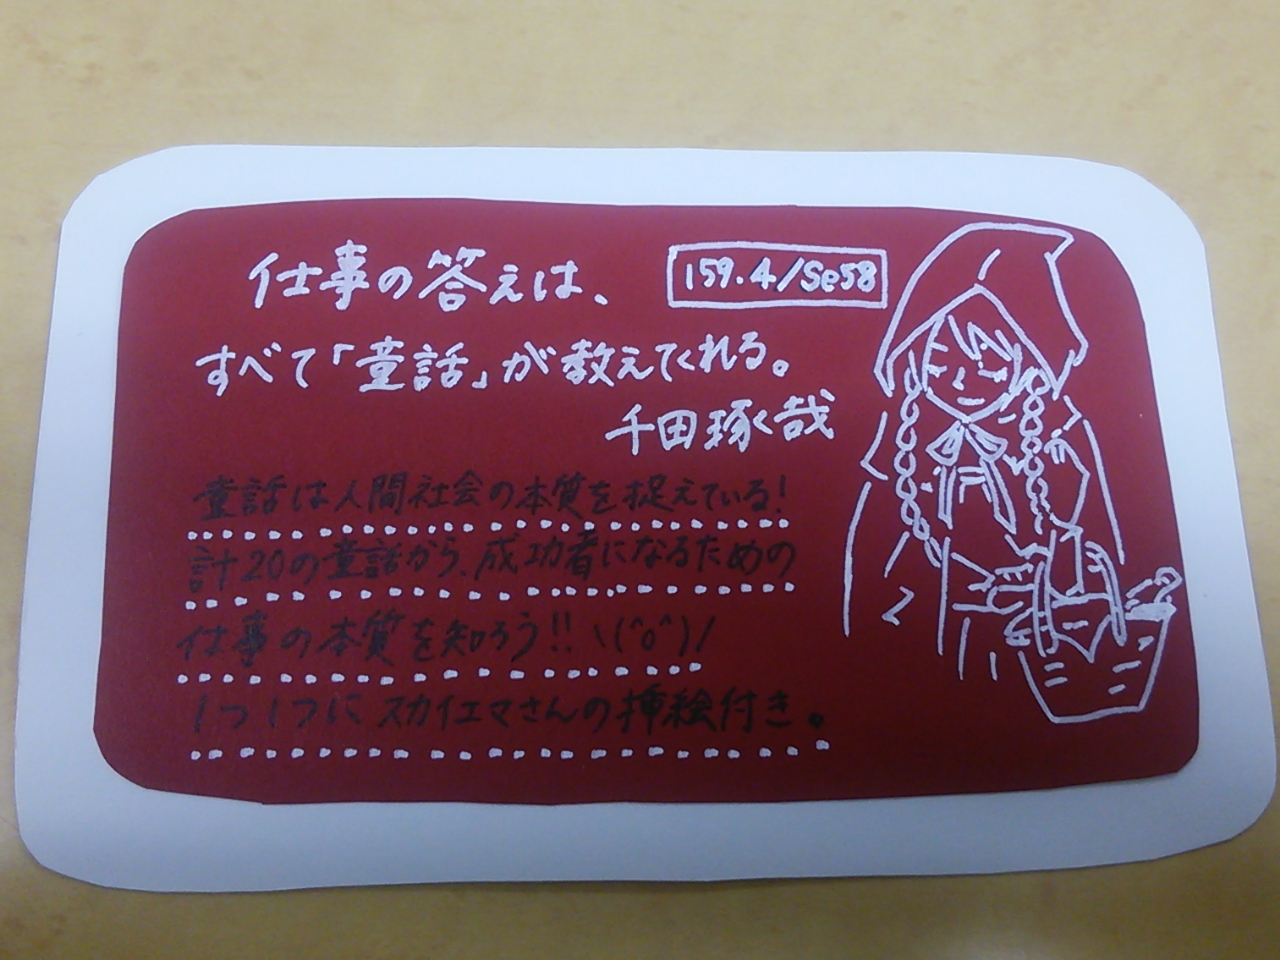 仕事の答えは、
159.4/Se58
すべて「童話」が教えてくれる。
千田琢哉
童話は人間社会の本質を捉えている!
計20の童話から、成功者になるための
仕事の本質を知ろう!! \(^o^)/
1つ1つにスカイエマさんの挿絵付き。